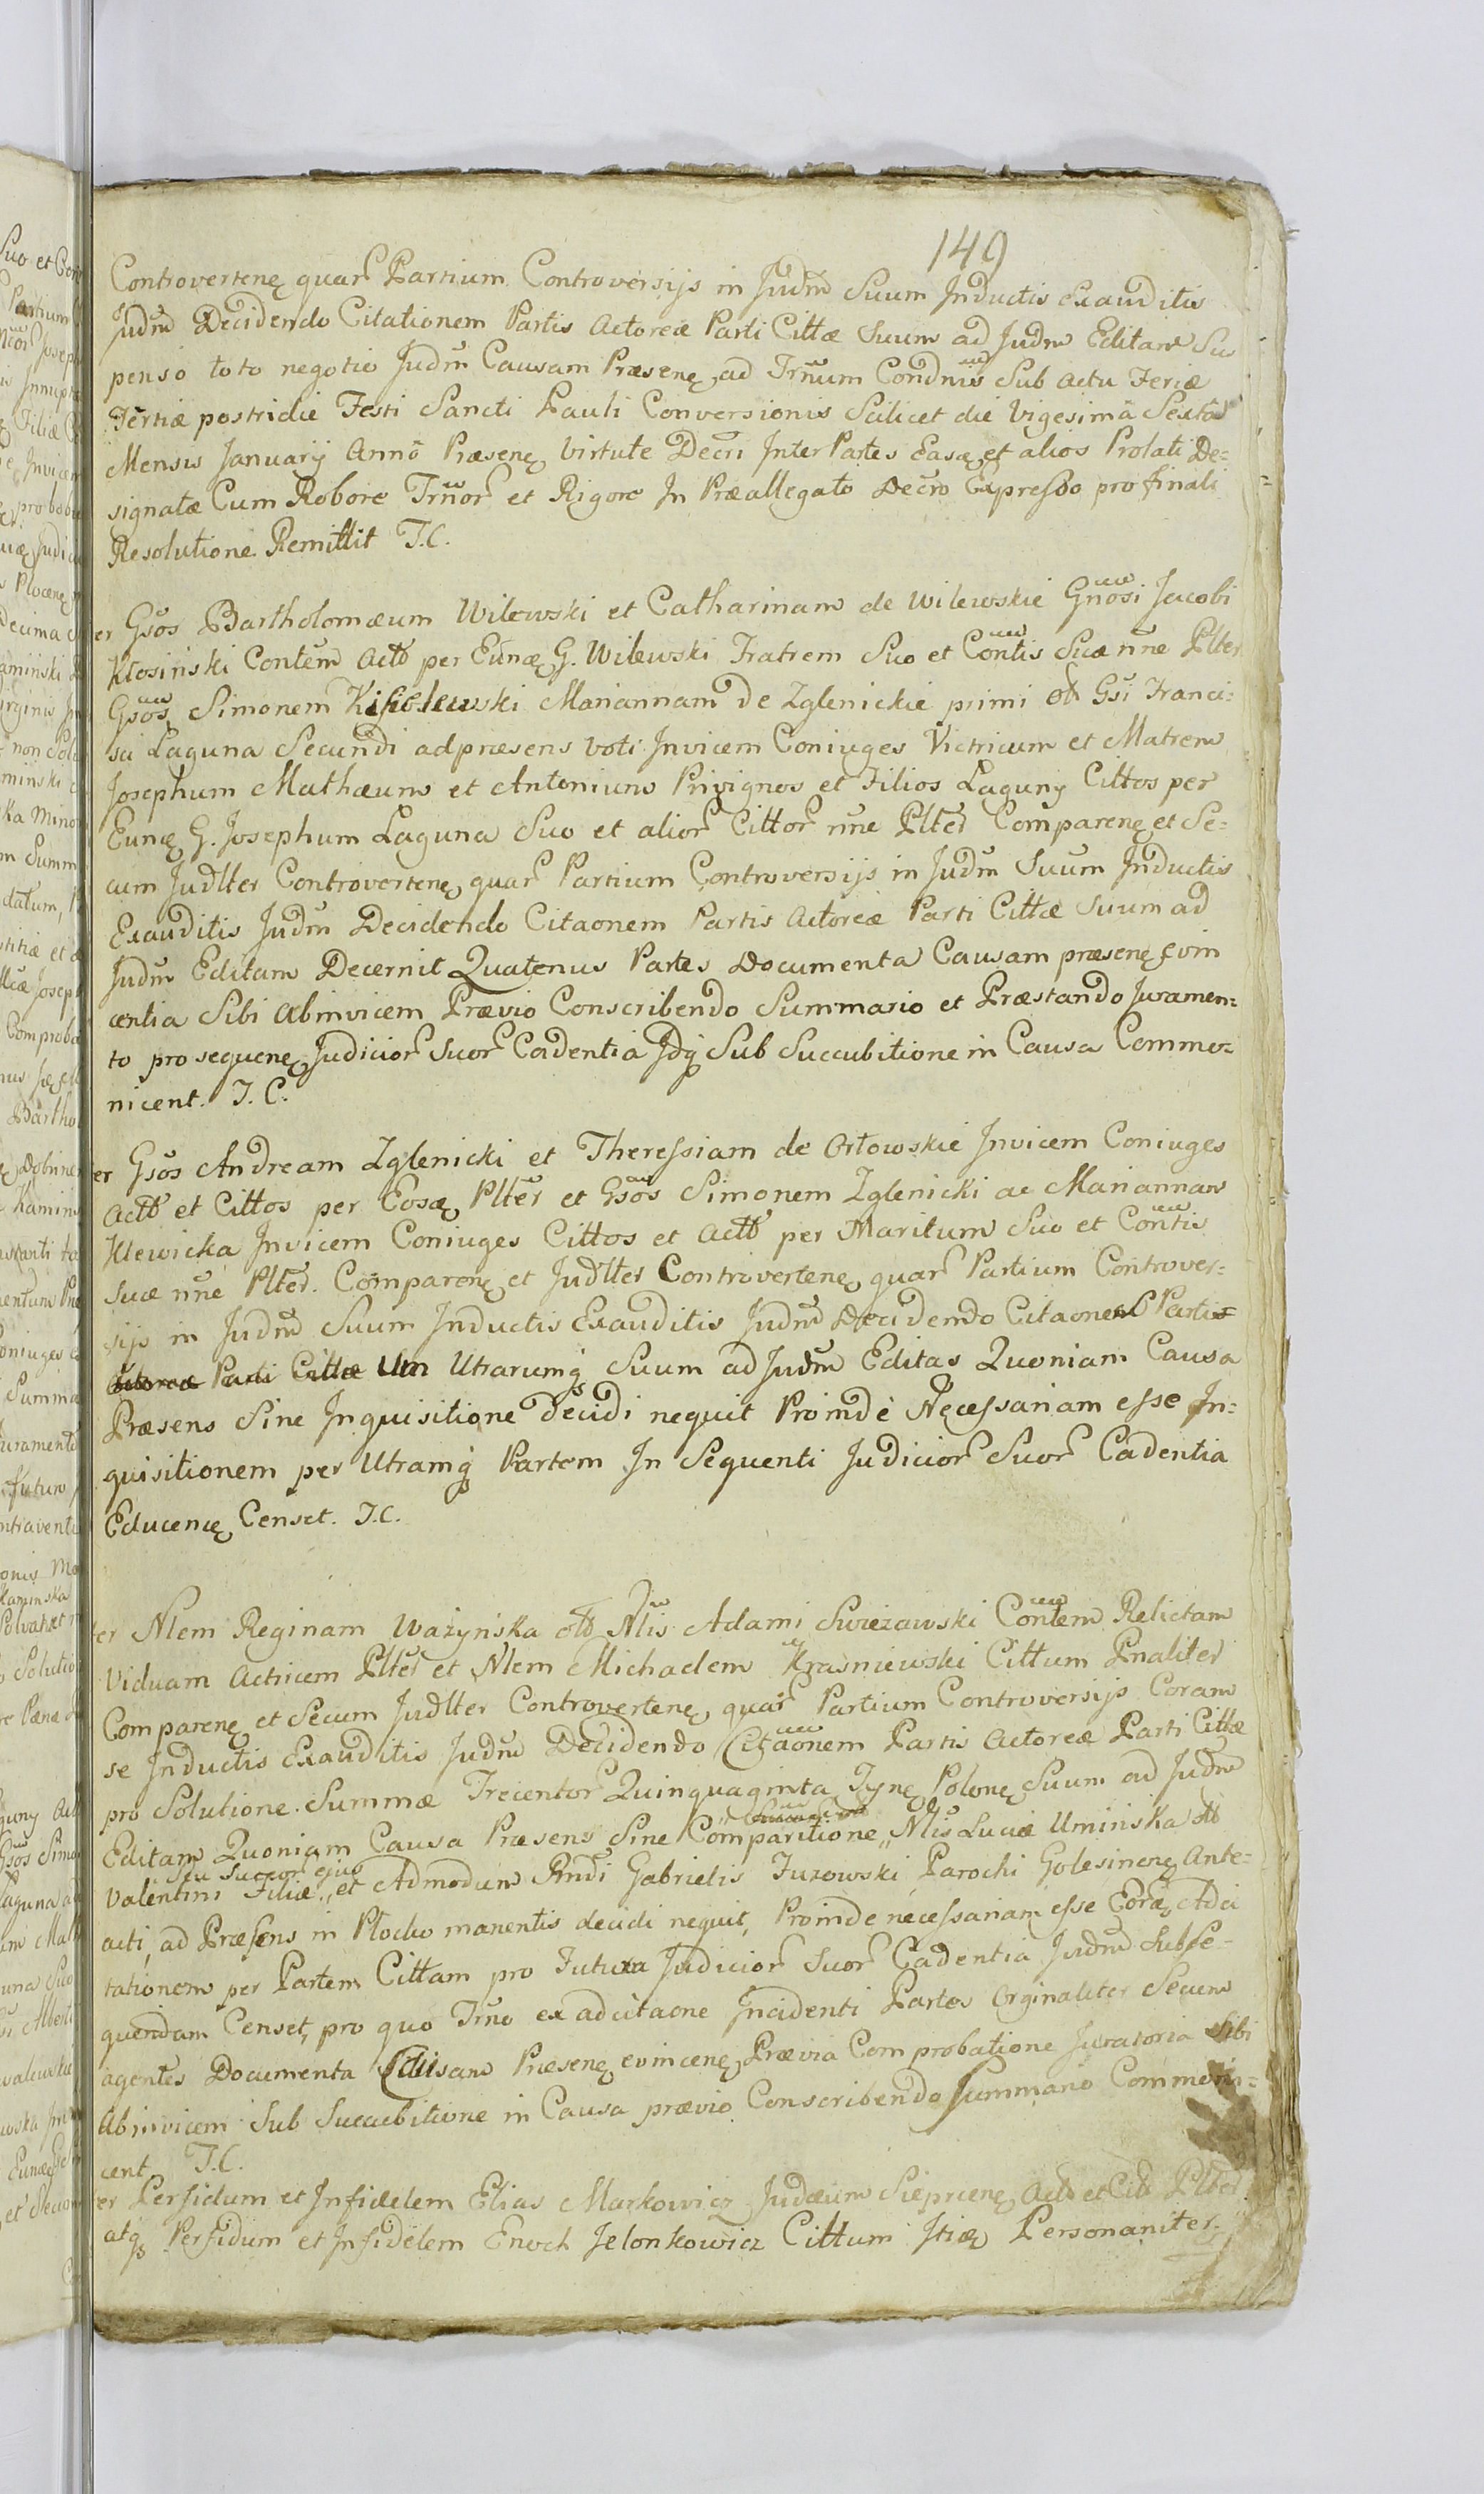 149
Controverteñ quar Partium Controversijs in Judm Suum Inductis Exauditis
Judm Decidendo Citationem Partis Actoreæ Parti Cittæ Suum ad Judm Editam Sus
penso toto negotio Judm Causam Præseñ ad Trñum Condnus Sub Actu Feriæ
Tertiæ postridie Festi Sancti Pauli Conversionis Scilicet die Vigesimâ Sextâ
Mensis January Annô Præseñ Virtute Decri Inter Partes Easq et alios Prolati De=
signatæ Cum Robore Trñor et Rigore In Præallegato Decro Expresso pro finali
Resolutione Remittit T.C.
er Gsos Bartholomæum Wilewski et Catharinam de Wilewskie Gnosi Jacobi
Kłosiński Contem Actt per Eunq G. Wilewski Fratrem Suo et Contis Suæ nne Plter
Gsos Simonem Kisielewski Mariannam de Zglenickie primi ott Gsi Franci=
sci Laguna Secundi ad præsens Voti Invicem Coniuges Victricum et Matrem
Josephum Mathæum et Antonium Privignos et Filios Laguny Cittos per
Eunq G. Josephum Laguna Suo et alior Cittor nne Plter Compareñ et Se=
cum Judlter Controverteñ quar Partium Controversijs in Judm Suum Inductis
Exauditis Judm Decidendo Citaonem Partis Actoreæ Parti Cittæ Suum ad
Judm Editam Decernit Quatenus Partes Documenta Causam præseñ evin
centia Sibi Abinvicem Prævio Conscribendo Summario et Præstando Juramen=
to pro sequeñ Judicior Suor Cadentia Idq Sub Succubitione in Causa Commu=
nicent. T.C.
er Gsos Andream Zglenicki et Theressiam de Orłowskie Invicem Coniuges
Actt et Cittos per Eosq Plter et Gsos Simonem Zglenicki ac Mariannam
Klewicka Invicem Coniuges Cittos et Actt per Maritum Suo et Contis
Suæ nne Plter. Compareñ et Judlter Controverteñ quar Partium Controver=
sijs in Judm Suum Inductis Exauditis Judm Decidendo Citaones Partis
Actoreæ Parti Cittæ Utrarumq Suum ad Judm Editas Quoniam Causa
Præsens Sine Inquisitione decidi nequit Proinde Necessariam esse In=
quisitionem per Utramq Partem In Sequenti Judicior Suor Cadentia
Educeñ Censet. T.C.
er Nlem Reginam Ważyńska ott Nlis Adami Swieżawski Contem Relictam
Viduam Actricem Plter et Nlem Michaelem Kraśniewski Cittum Pnaliter
Compareñ et Secum Judlter Controverteñ quar Partium Controversijs Coram
se Inductis Exauditis Judm Decidendo Citaonem Partis Actoreæ Parti Cittæ
pro Solutione Summæ Trecentor Quinquaginta Tyñ Poloñ Suum ad Judm
Editam Quoniam Causa Præsens Sine Comparitione Nlis Luciæ Uminska ott
Valentini Filiæ seu Succor ejus et Admodum Rndi Gabrielis Jurowski Parochi Golesineñ Ante=
acti, ad Præsens in Płocko manentis decidi nequit, Proinde necessariam esse Eorq Adci
tationem per Partem Cittam pro Futura Judicior Suor Cadentia Judm Subse=
quendam Censet, pro quo Trño ex adcitaone Incidenti Partes Orginaliter Secum
agentes Documenta Causam Præseñ evinceñ Prævia Comprobatione Juratoria Sibi
Abinvicem Sub Succubitione in Causa prævio Conscribendo Summario Communi=
cent T.C.
er Perfidum et Infidelem Elias Markowicz Judæum Siepreeñ Actt et Citt Plter
atq Perfidum et Infidelem Enoch Jelonkowicz Cittum Itiq Personaniter